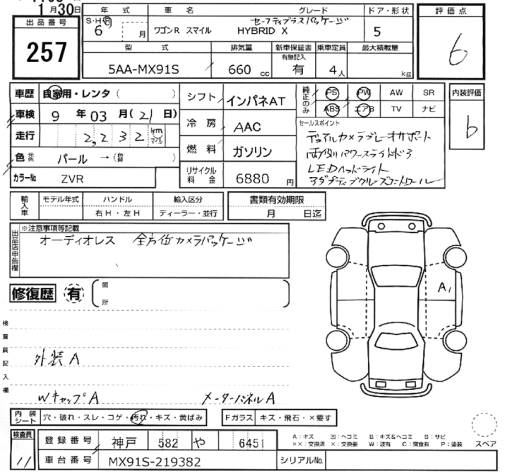 1月30日
出品番号
257
年式
S・H・R 6年 月
車名
ワゴンR スマイル
グレード
セーフティプラスパッケージ
HYBRID X
ドア・形状
5
評価点
6
型式
5AA-MX91S
排気量
660 cc
新車保証書
有無記入
有
乗車定員
4人
最大積載量
kg
車歴 自家用・レンタ( )
車検 9年03月(21日)
走行 2,232 km
色 パール → ( )
カラーNo ZVR
シフト インパネAT
冷房 AAC
燃料 ガソリン
リサイクル料金 6880円
純正のみ
PS PW AW SR
ABS エアB TV ナビ
内装評価
b
セールスポイント
デュアルカメラブレーキサポート
両側パワースライドドア
LEDヘッドライト
アダプティブクルーズコントロール
輸入車
モデル年式
ハンドル
右H・左H
輸入区分
ディーラー・並行
書類有効期限
月 日迄
出品店申告欄
※注意事項等記載
オーディオレス 全方位カメラパッケージ
修復歴 有
箇所
A1
検査員記入欄
外装A
WキャップA メーターパネルA
内装シート
穴・破れ・スレ・コゲ・汚れ・キズ・黄ばみ
Fガラス キズ・飛石・×要す
検査員
11
登録番号 神戸 582 や 6451
車台番号 MX91S-219382
シリアルNo.
スペア